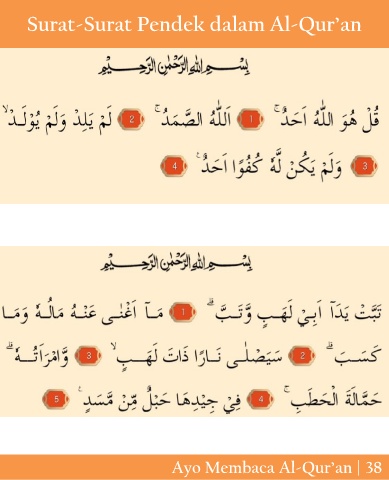 Surat-Surat Pendek dalam Al-Qur’an
بِسْــمِ اللهِ الرَّحْمٰنِ الرَّحِــيْمِ
قُلْ هُوَ اللّٰهُ اَحَدٌۚ ۝1 اَللّٰهُ الصَّمَدُۚ ۝2 لَمْ يَلِدْ وَلَمْ يُوْلَــدْۙ
۝3 وَلَمْ يَكُنْ لَّهٗ كُفُوًا اَحَدٌࣖ ۝4
بِسْــمِ اللهِ الرَّحْمٰنِ الرَّحِــيْمِ
تَبَّتْ يَدَآ اَبِيْ لَهَبٍ وَّتَــبَّۗ ۝1 مَــآ اَغْنٰــى عَنْــهُ مَالُــهٗ وَمَــا
كَسَــبَۗ ۝2 سَيَصْلٰــى نَــارًا ذَاتَ لَهَــبٍۙ ۝3 وَّامْرَاَتُــهٗۗ
حَمَّالَةَ الْحَطَبِۚ ۝4 فِيْ جِيْدِهَا حَبْلٌ مِّنْ مَّسَدٍࣖ ۝5
Ayo Membaca Al-Qur’an | 38